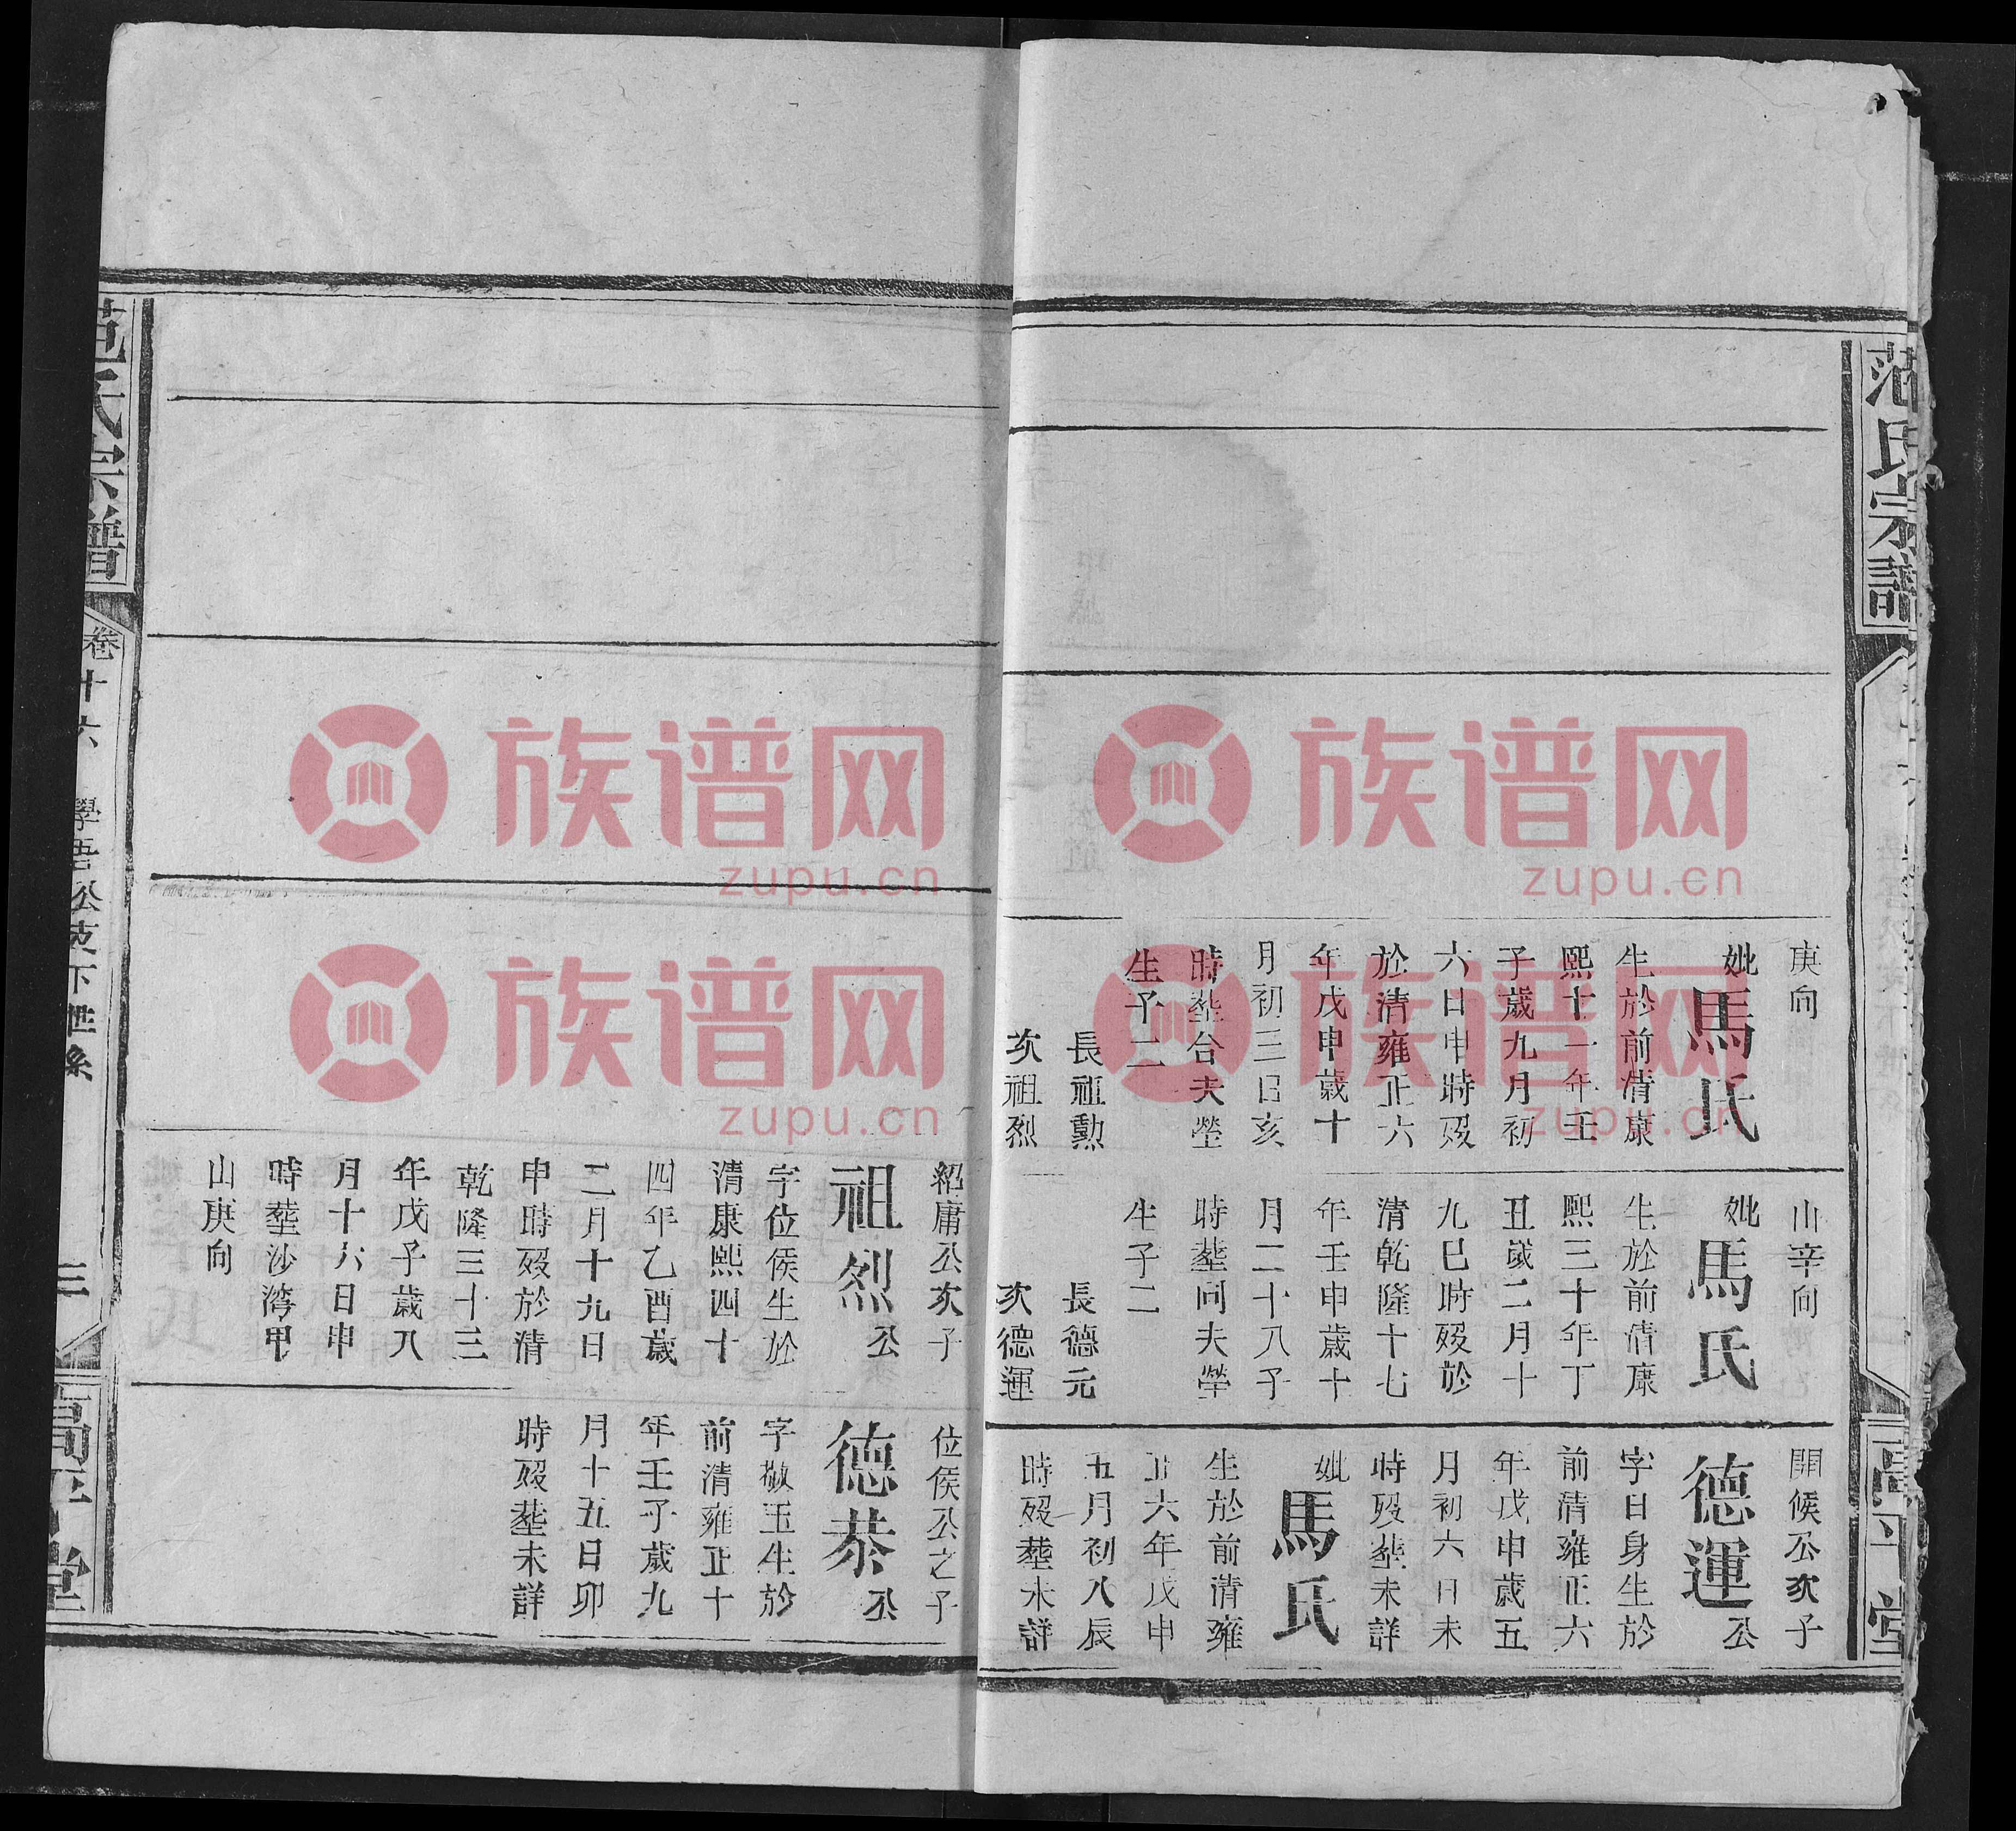 范氏宗譜
庚向
妣馬氏
生於前清康
熙十一年壬
子歲九月初
六日申時歿
於清雍正六
年戊申歲十
月初三日亥
時塟合夫塋
生子二
長祖勲
次祖烈
山辛向
妣馬氏
生於前清康
熙三十年丁
丑歲二月十
九巳時歿於
清乾隆十七
年壬申歲十
月二十八子
時塟同夫塋
生子二
長德元
次德運
開候公次子
德運公
字日身生於
前清雍正六
年戊申歲五
月初六日未
時歿塟未詳
妣馬氏
生於前清雍
正六年戊申
五月初八辰
時歿塟未詳
高平堂
紹庸公次子
祖烈公
字位侯生於
清康熙四十
四年乙酉歲
二月十九日
申時歿於清
乾隆三十三
年戊子歲八
月十六日申
時塟沙湾甲
山庚向
位侯公之子
德恭公
字敬玉生於
前清雍正十
年壬子歲九
月十五日卯
時歿塟未詳
范氏宗譜
卷十六
學吾公支下世系
三
高平堂
族谱网
zupu.cn
族谱网
zupu.cn
族谱网
zupu.cn
族谱网
zupu.cn